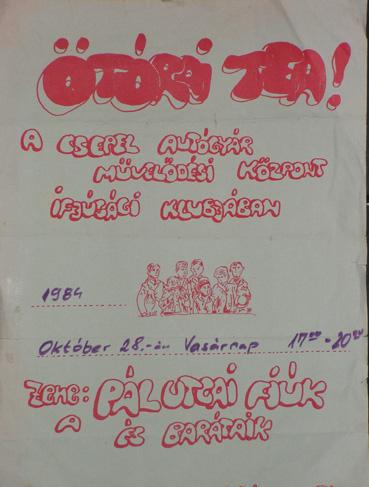 ÖTÓRAI TEA!
A CSEPEL AUTÓGYÁR
MŰVELŐDÉSI KÖZPONT
IFJÚSÁGI KLUBJÁBAN
1984
Október 28.-án Vasárnap 17⁰⁰-20⁰⁰
Zene: PÁL UTCAI FIÚK
A ÉS BARÁTAIK